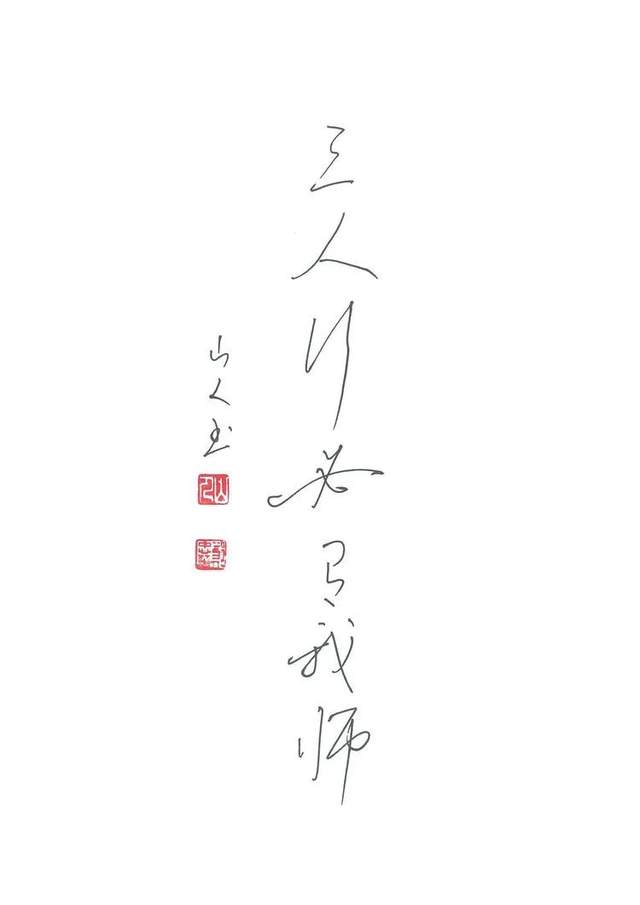 三人行必有我师
山人书